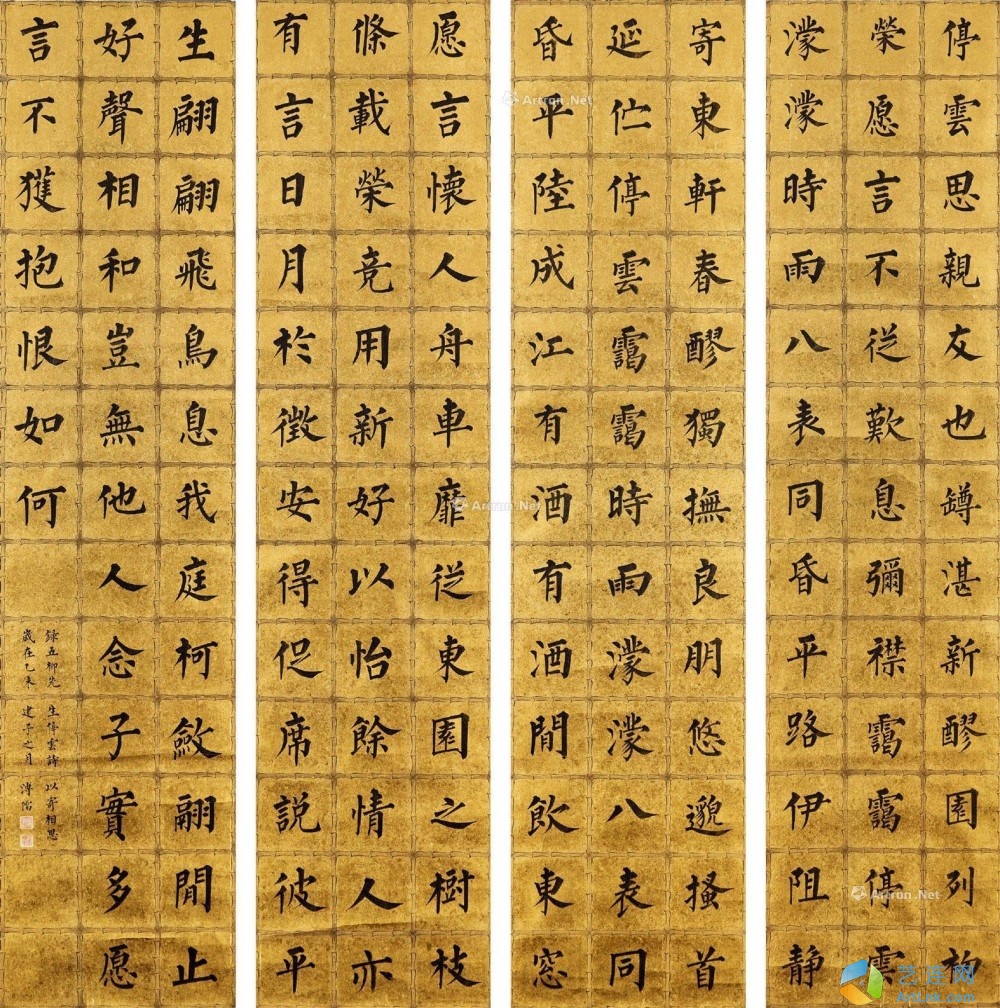 停雲思親友也罇湛新醪園列初
榮愿言不從歎息彌襟靄靄停雲
濛濛時雨八表同昏平路伊阻靜
寄東軒春醪獨撫良朋悠邈搔首
延伫停雲靄靄時雨濛濛八表同
昏平陸成江有酒有酒閒飲東窓
愿言懷人舟車靡從東園之樹枝
條載榮竞用新好以怡餘情人亦
有言日月於徵安得促席説彼平
生翩翩飛鳥息我庭柯斂翮閒止
好聲相和豈無他人念子實多愿
言不獲抱恨如何
録五柳先生停雲詩以寄相思
歲在乙未建子之月溥
Artron.Net
Artron.Net
Artron.Net
艺连网